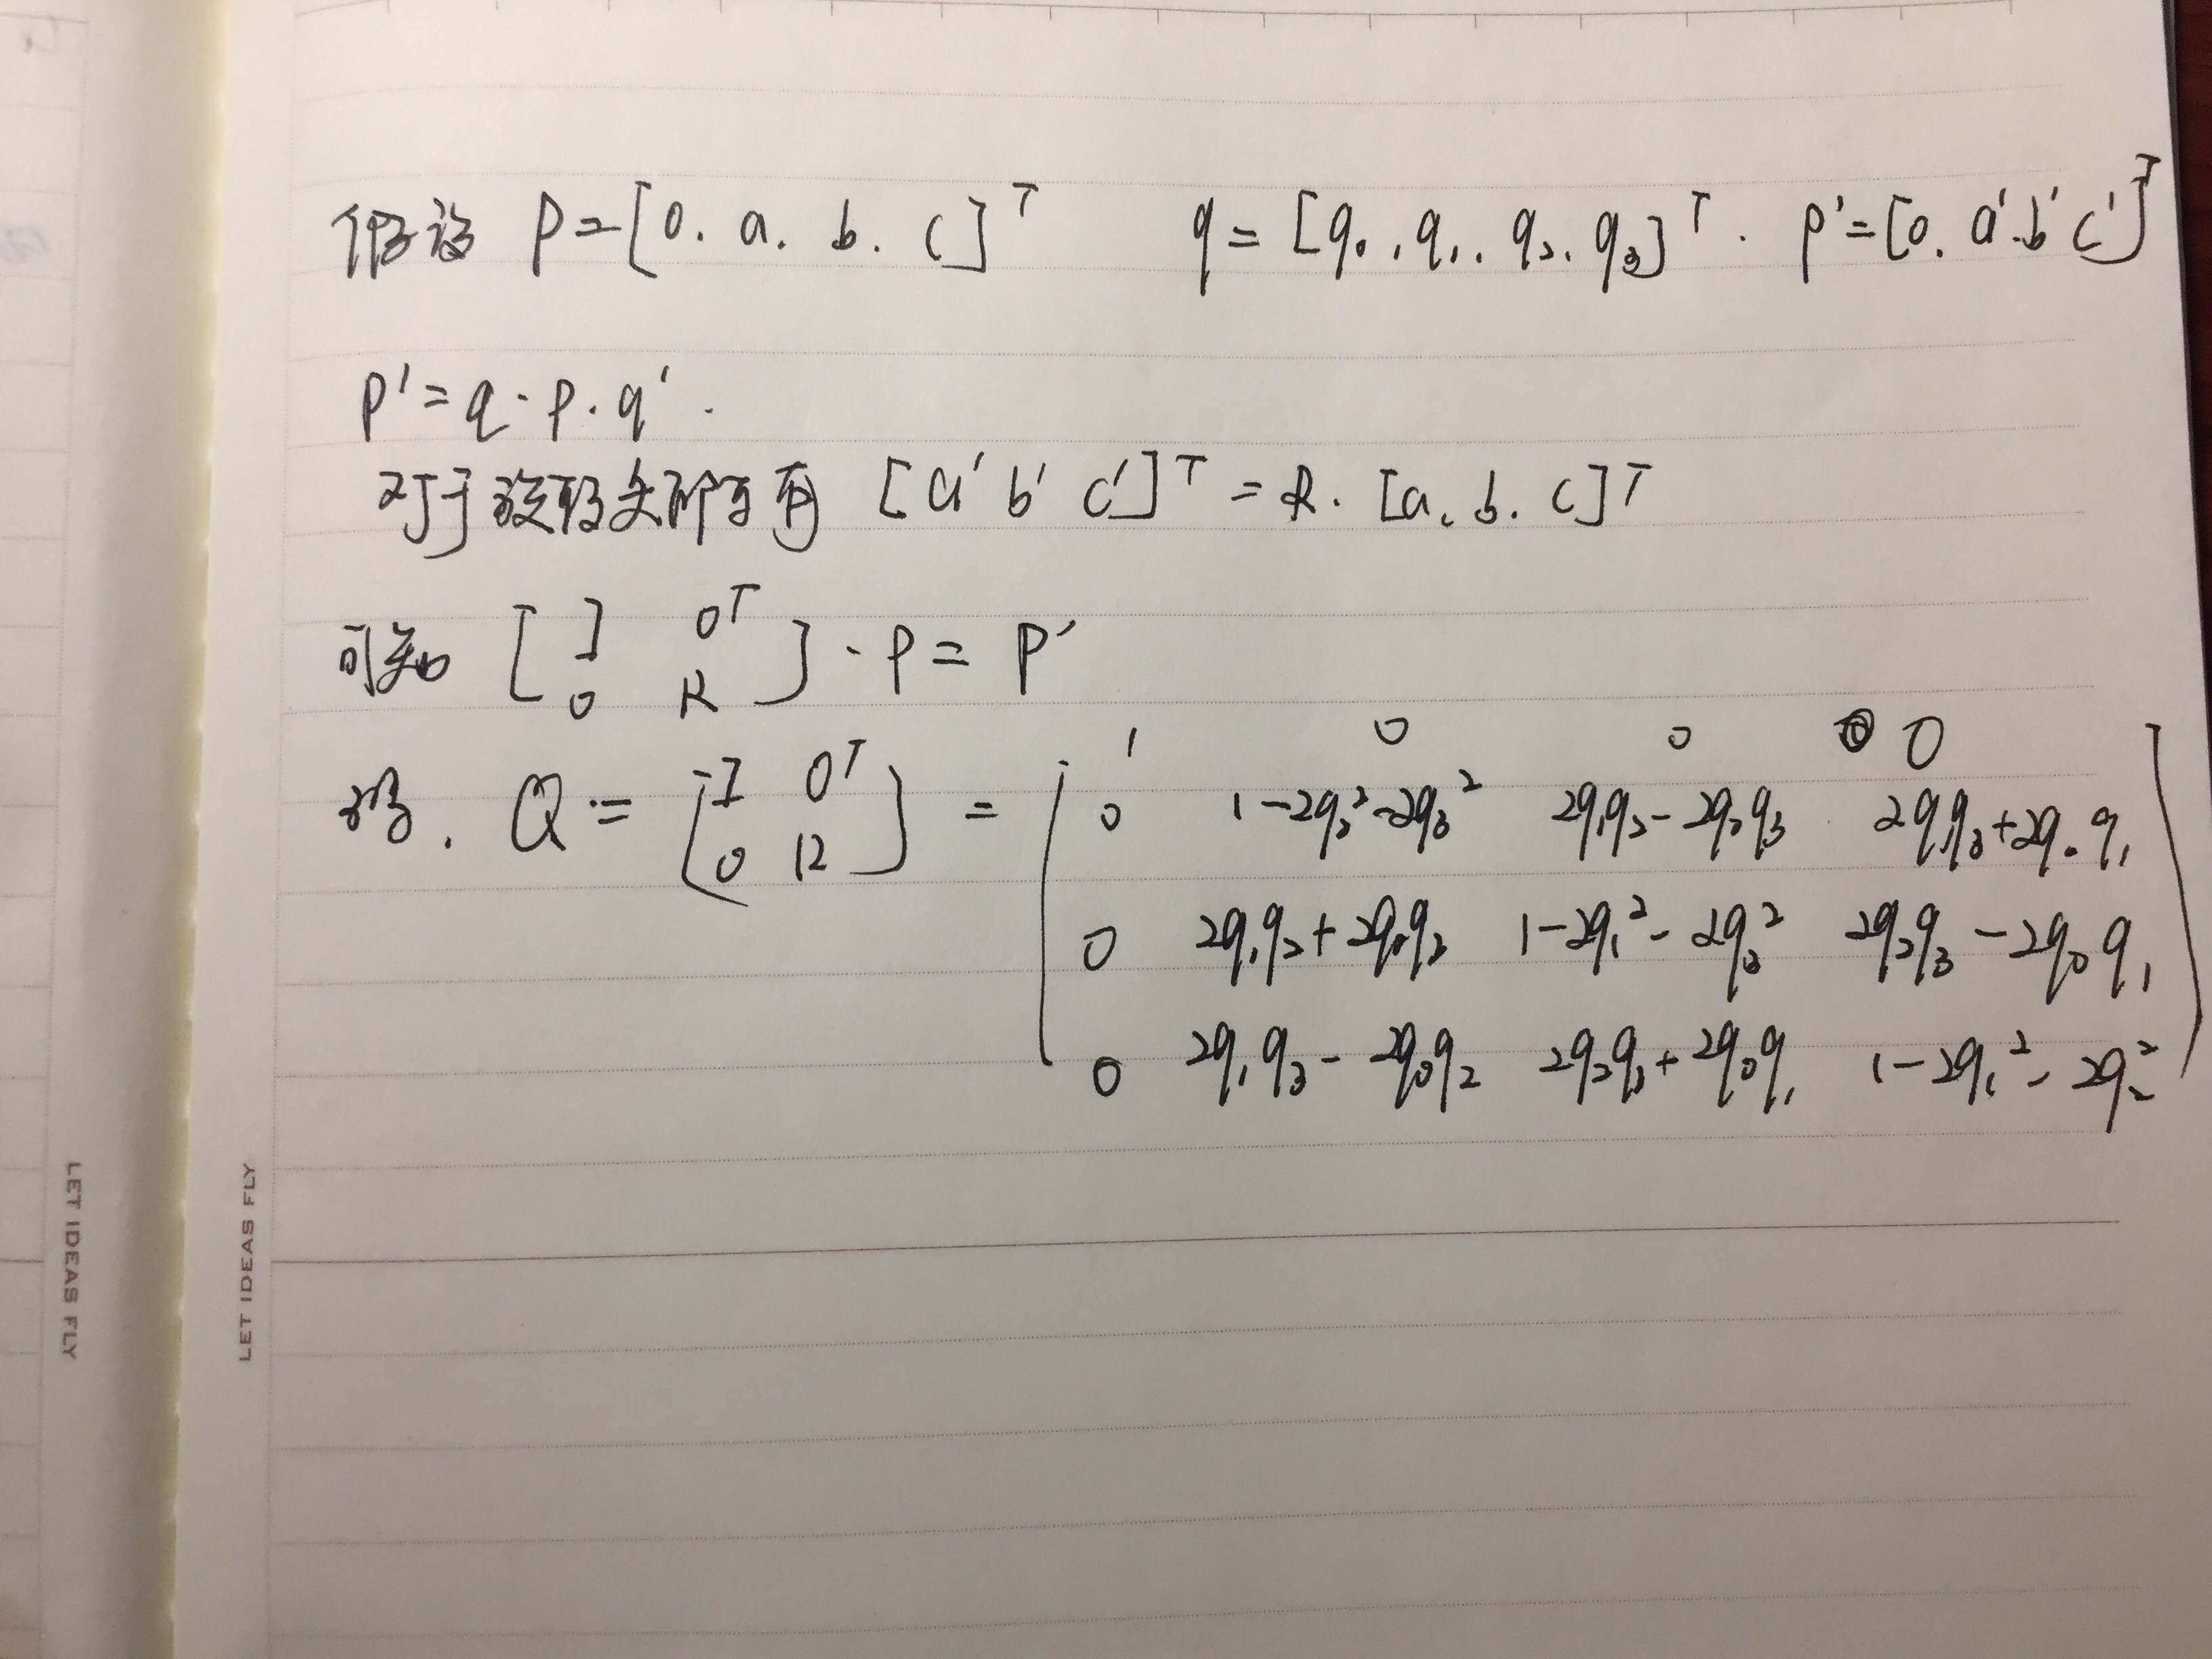 假设 P=[0. a. b. c]ᵀ q=[q₀,q₁,q₂,q₃]ᵀ. p'=[0. a'.b' c']ᵀ
p'=q·p·q'.
对于旋转矩阵可有 [a' b' c']ᵀ=R.[a. b. c]ᵀ
可知 [I 0ᵀ
0 R]·P=P'
得. Q:=[I 0ᵀ = [1 0 0 0
0 R] 0 1-2q₂²-2q₃² 2q₁q₂-2q₀q₃ 2q₁q₃+2q₀q₁
0 2q₁q₂+2q₀q₃ 1-2q₁²-2q₃² 2q₂q₃-2q₀q₁
0 2q₁q₃-2q₀q₂ 2q₂q₃+2q₀q₁ 1-2q₁²-2q₂²]
LET IDEAS FLY
LET IDEAS FLY